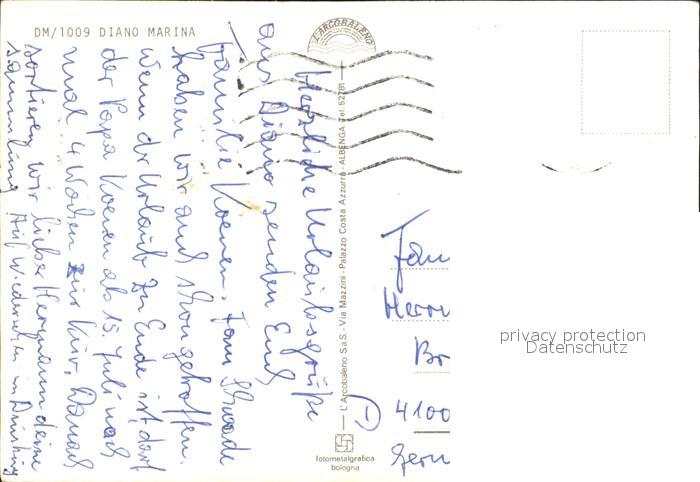 DM/1009 DIANO MARINA
L'ARCOBALENO
Herzliche Urlaubsgrüße
aus Diano senden Euch
Familie Koenen. Fam
haben wir auch schon getroffen.
Wenn dr Urlaub zu Ende ist, darf
der Papa Koenen ab 15. Juli noch
mal 4 Wochen zur Kur. Danach
sortieren wir lieber Hermann deine
Sammlung. Auf Wiedersehen in
L'Arcobaleno S.a.S. - Via Mazzini - Palazzo Costa Azzurra - ALBENGA Tel. 52781
fotometalgrafica
bologna
Fam
Herrn
Br
D 4100
Germ
privacy protection
Datenschutz